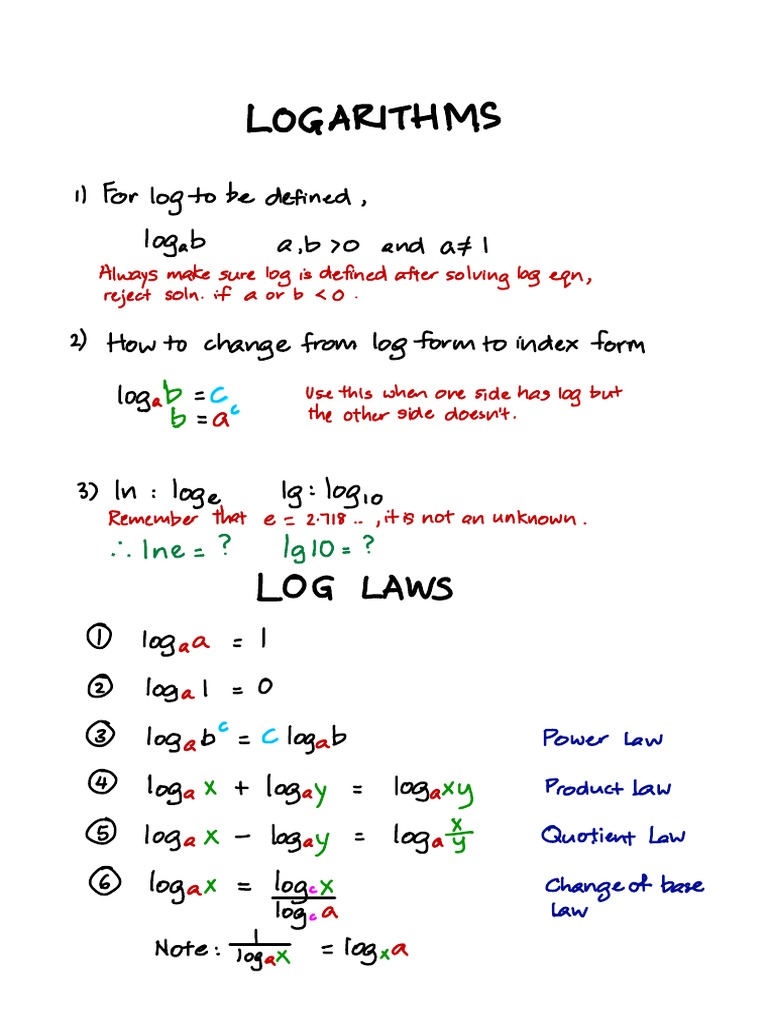 LOGARITHMS
1) For log to be defined,
logₐb a,b >0 and a≠1
Always make sure log is defined after solving log eqn,
reject soln. if a or b < 0.
2) How to change from log form to index form
logₐb = c Use this when one side has log but
b = aᶜ the other side doesn't.
3) ln : logₑ lg : log₁₀
Remember that e = 2.718.. , it is not an unknown.
∴ lne = ? lg10 = ?
LOG LAWS
① logₐa = 1
② logₐ1 = 0
③ logₐbᶜ = c logₐb Power Law
④ logₐx + logₐy = logₐxy Product Law
⑤ logₐx − logₐy = logₐ x/y Quotient Law
⑥ logₐx = log_c x / log_c a Change of base
Law
Note: 1/logₐx = logₓa